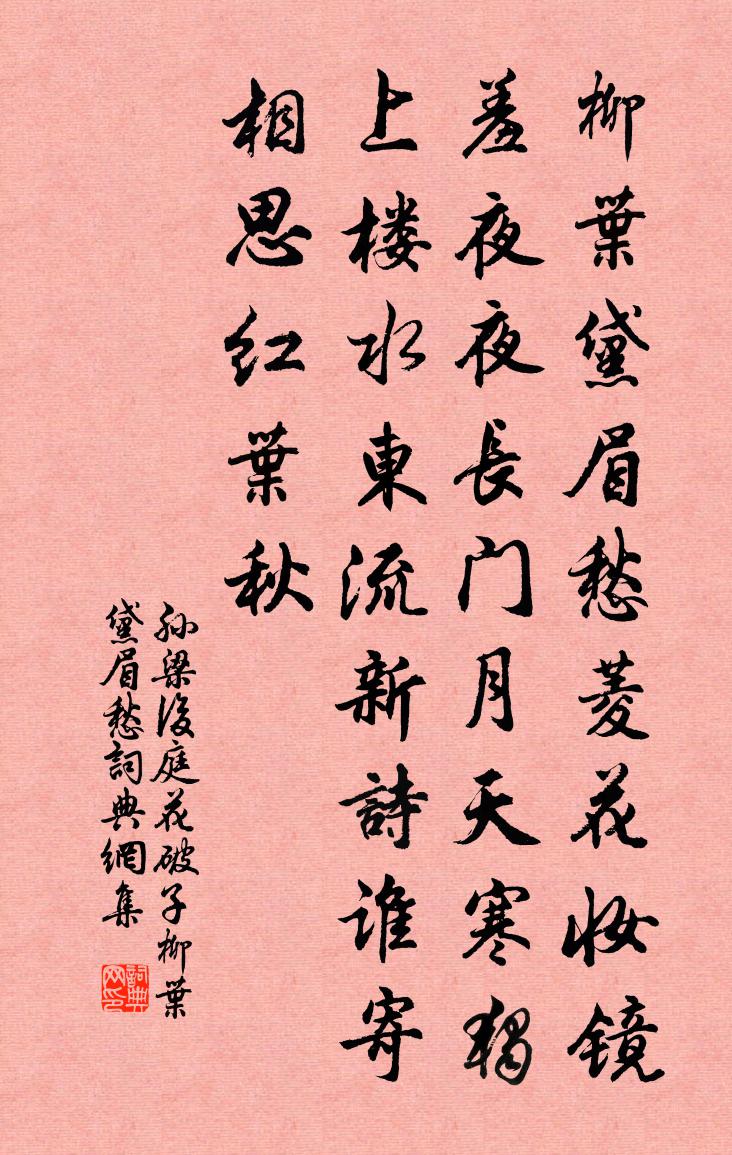 柳葉黛眉愁菱花妆镜
羞夜夜長门月天寒独
上楼水東流新詩谁寄
相思红葉秋
孙梁後庭花破子柳葉
黛眉愁詞典網集
詞典网印